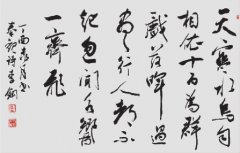 天寒水鸟自
相依十百为群
戏落晖过
尽行人都不
起忽闻冰响
一齐飞
丁酉春月书
秦观诗